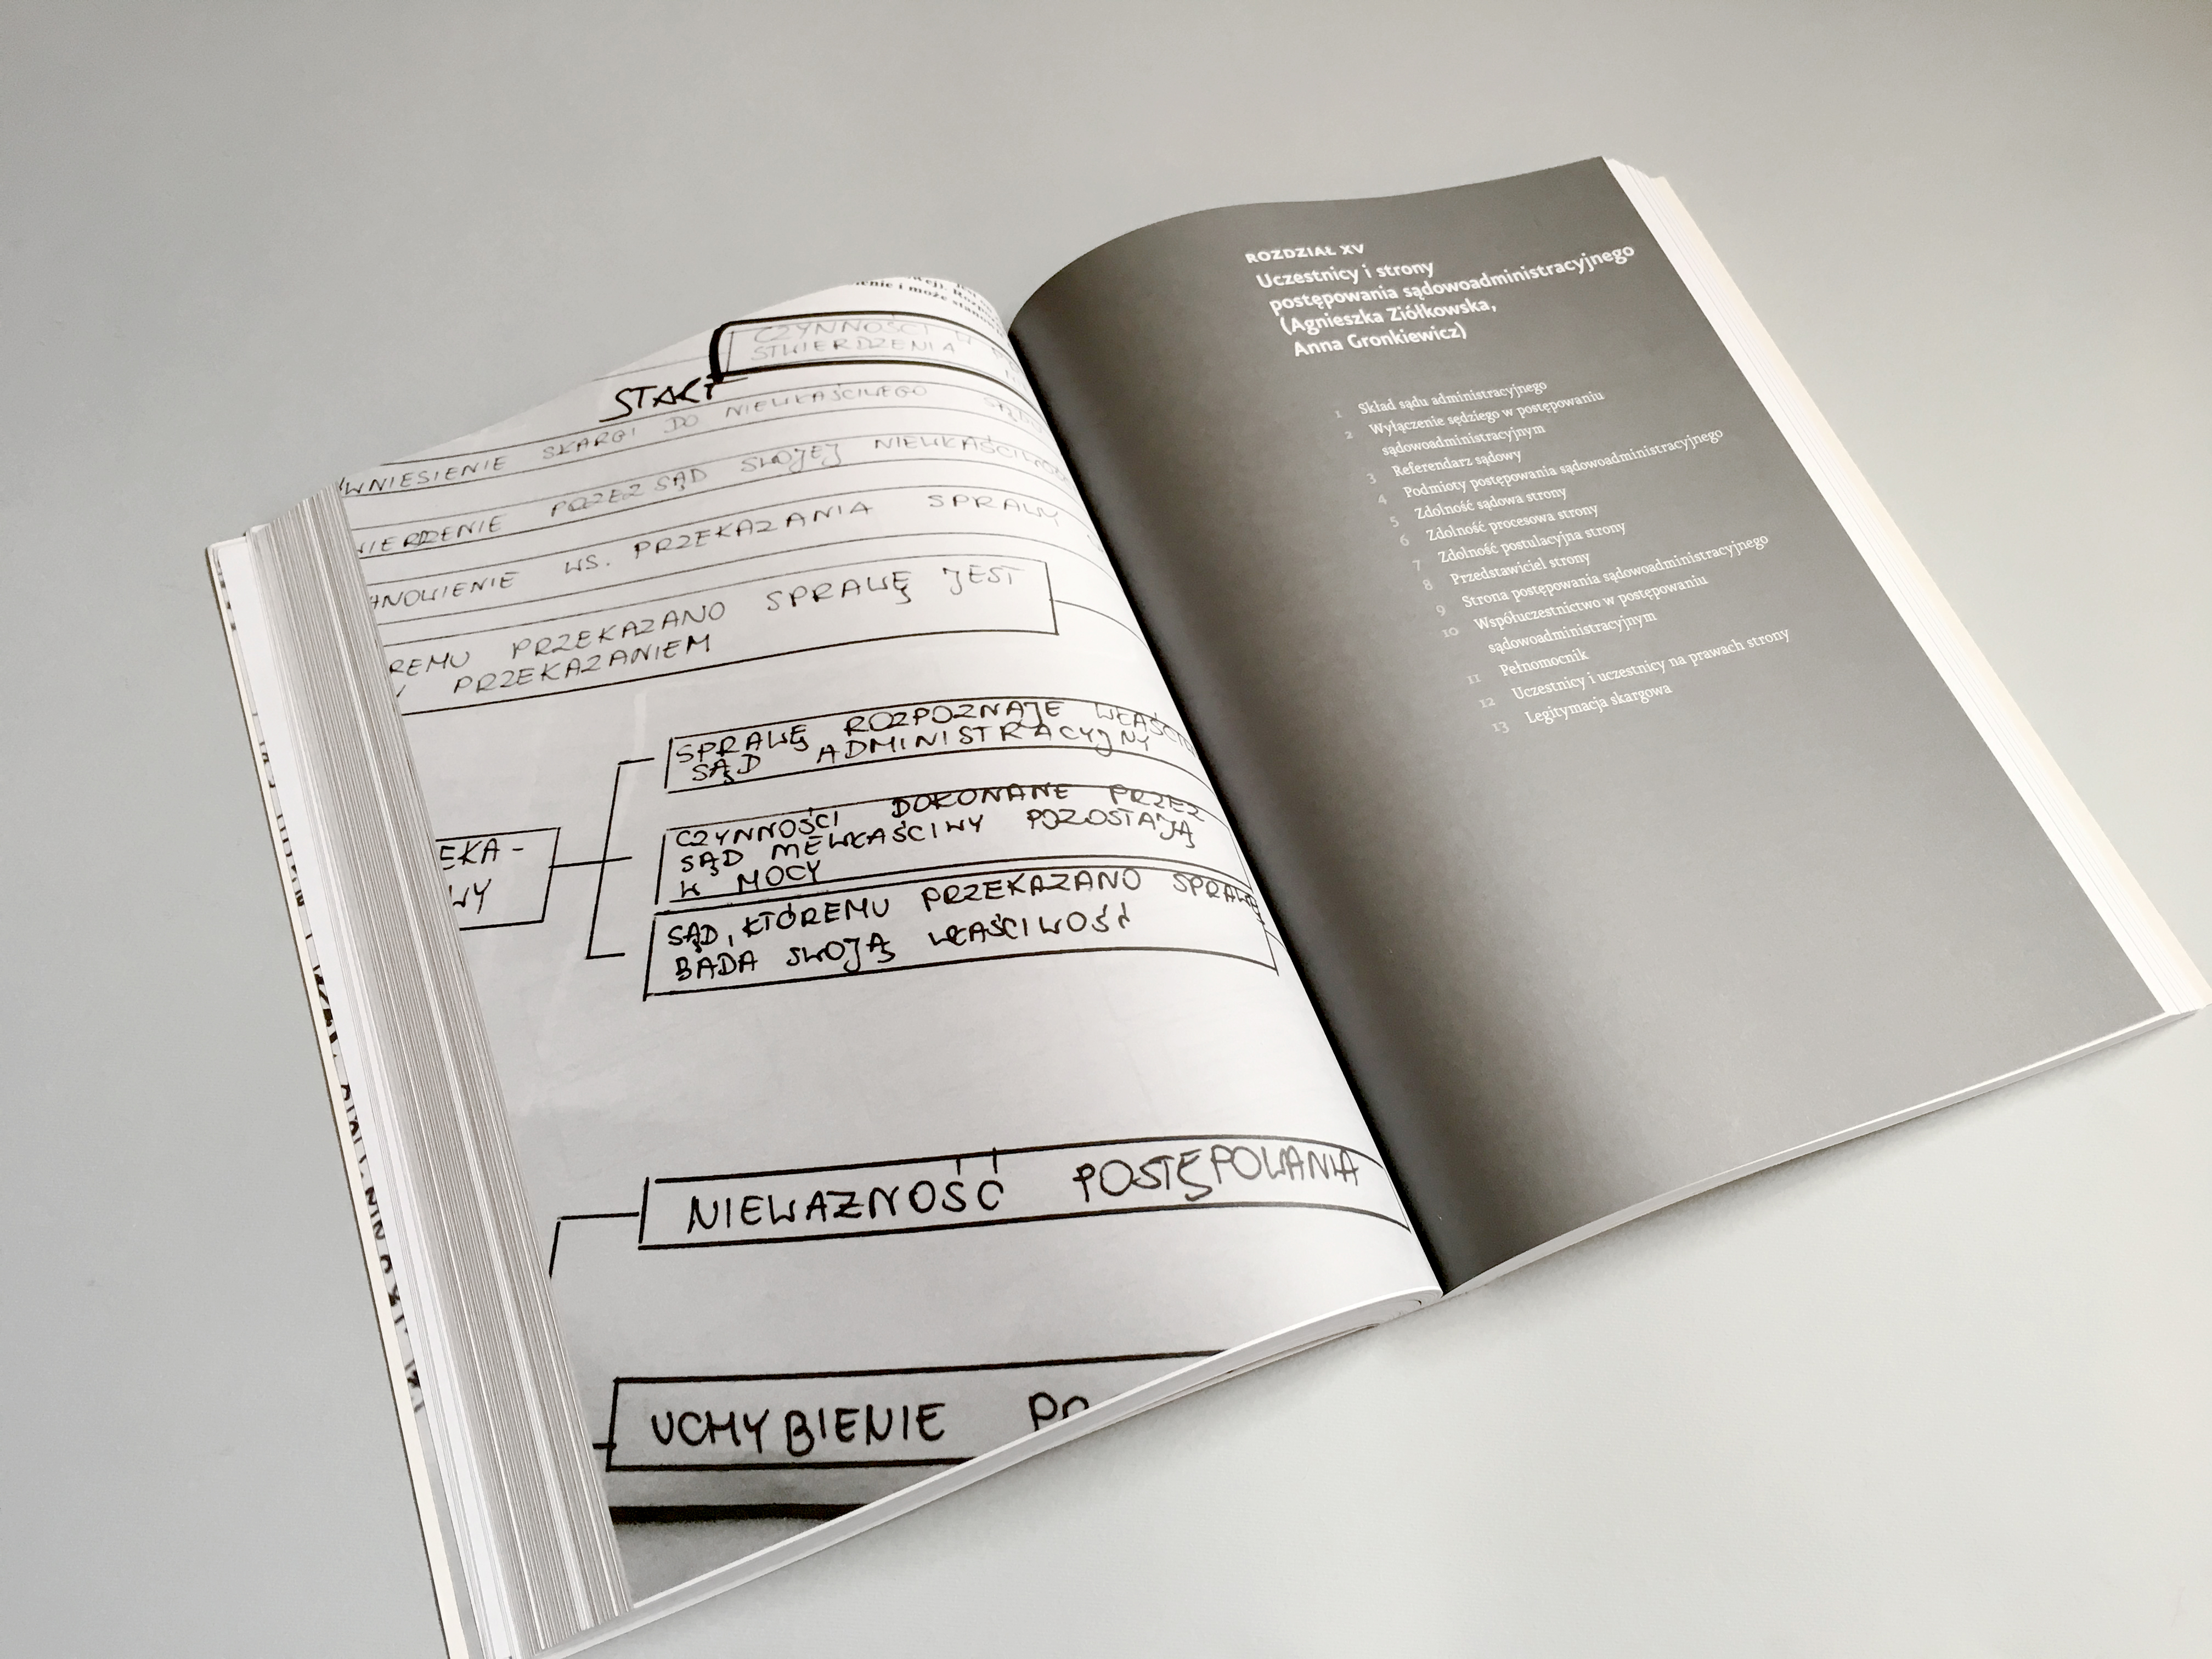 nie i może stanow
CZYNNOŚCI W
STWIERDZENIA
START
WNIESIENIE SKARGI DO NIEWŁAŚCIWEGO SĄDU
IERDZENIE PRZEZ SĄD SWOJEJ NIEWŁAŚCIWOŚ
ANOWIENIE WS. PRZEKAZANIA SPRAWY
REMU PRZEKAZANO SPRAWĘ JEST
PRZEKAZANIEM
SPRAWĘ ROZPOZNAJE WŁAŚCI
SĄD ADMINISTRACYJNY
EKA-
WY
CZYNNOŚCI DOKONANE PRZEZ
SĄD NIEWŁAŚCIWY POZOSTAJĄ
W MOCY
SĄD, KTÓREMU PRZEKAZANO SPRAWĘ
BADA SWOJĄ WŁAŚCIWOŚĆ
NIEWAZNOŚĆ POSTĘPOWANIA
UCHYBIENIE PO
ROZDZIAŁ XV
Uczestnicy i strony
postępowania sądowoadministracyjnego
(Agnieszka Ziółkowska,
Anna Gronkiewicz)
1 Skład sądu administracyjnego
2 Wyłączenie sędziego w postępowaniu
sądowoadministracyjnym
3 Referendarz sądowy
4 Podmioty postępowania sądowoadministracyjnego
5 Zdolność sądowa strony
6 Zdolność procesowa strony
7 Zdolność postulacyjna strony
8 Przedstawiciel strony
9 Strona postępowania sądowoadministracyjnego
10 Współuczestnictwo w postępowaniu
sądowoadministracyjnym
11 Pełnomocnik
12 Uczestnicy i uczestnicy na prawach strony
13 Legitymacja skargowa